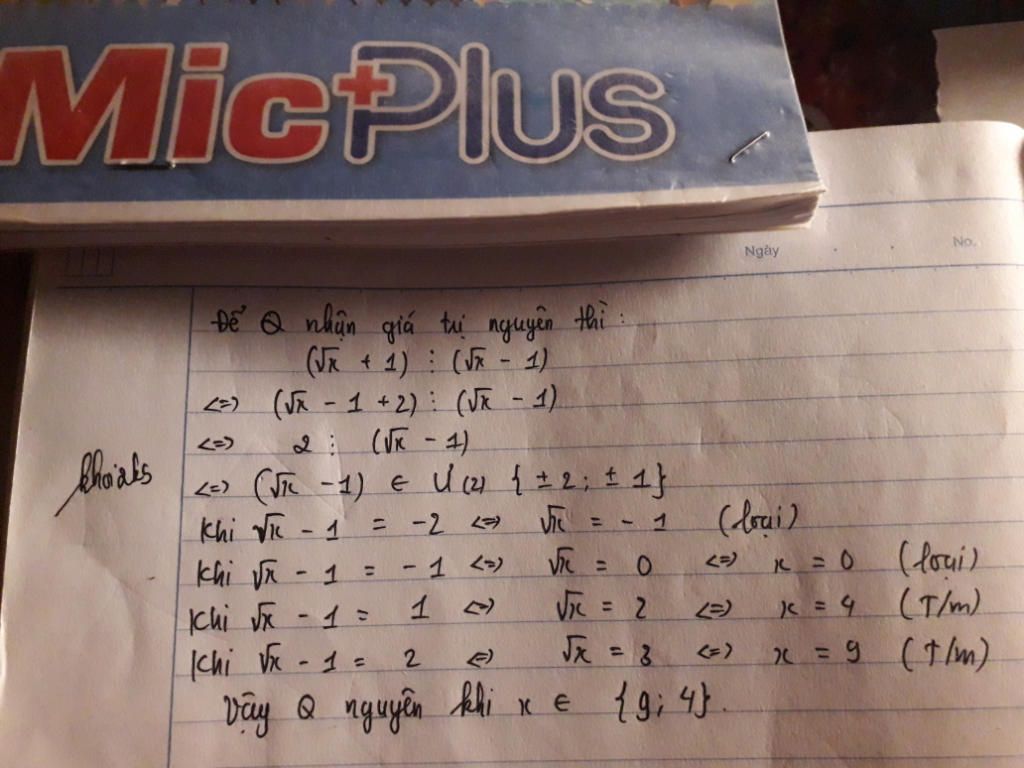 Mic+Plus
Ngày
No.
Để Q nhận giá trị nguyên thì:
(√x + 1) ⋮ (√x - 1)
<=> (√x - 1 + 2) ⋮ (√x - 1)
<=> 2 ⋮ (√x - 1)
khoiaks
<=> (√x - 1) ∈ Ư(2) {±2; ±1}
Khi √x - 1 = -2 <=> √x = -1 (loại)
Khi √x - 1 = -1 <=> √x = 0 <=> x = 0 (loại)
Khi √x - 1 = 1 <=> √x = 2 <=> x = 4 (T/m)
Khi √x - 1 = 2 <=> √x = 3 <=> x = 9 (T/m)
Vậy Q nguyên khi x ∈ {9; 4}.